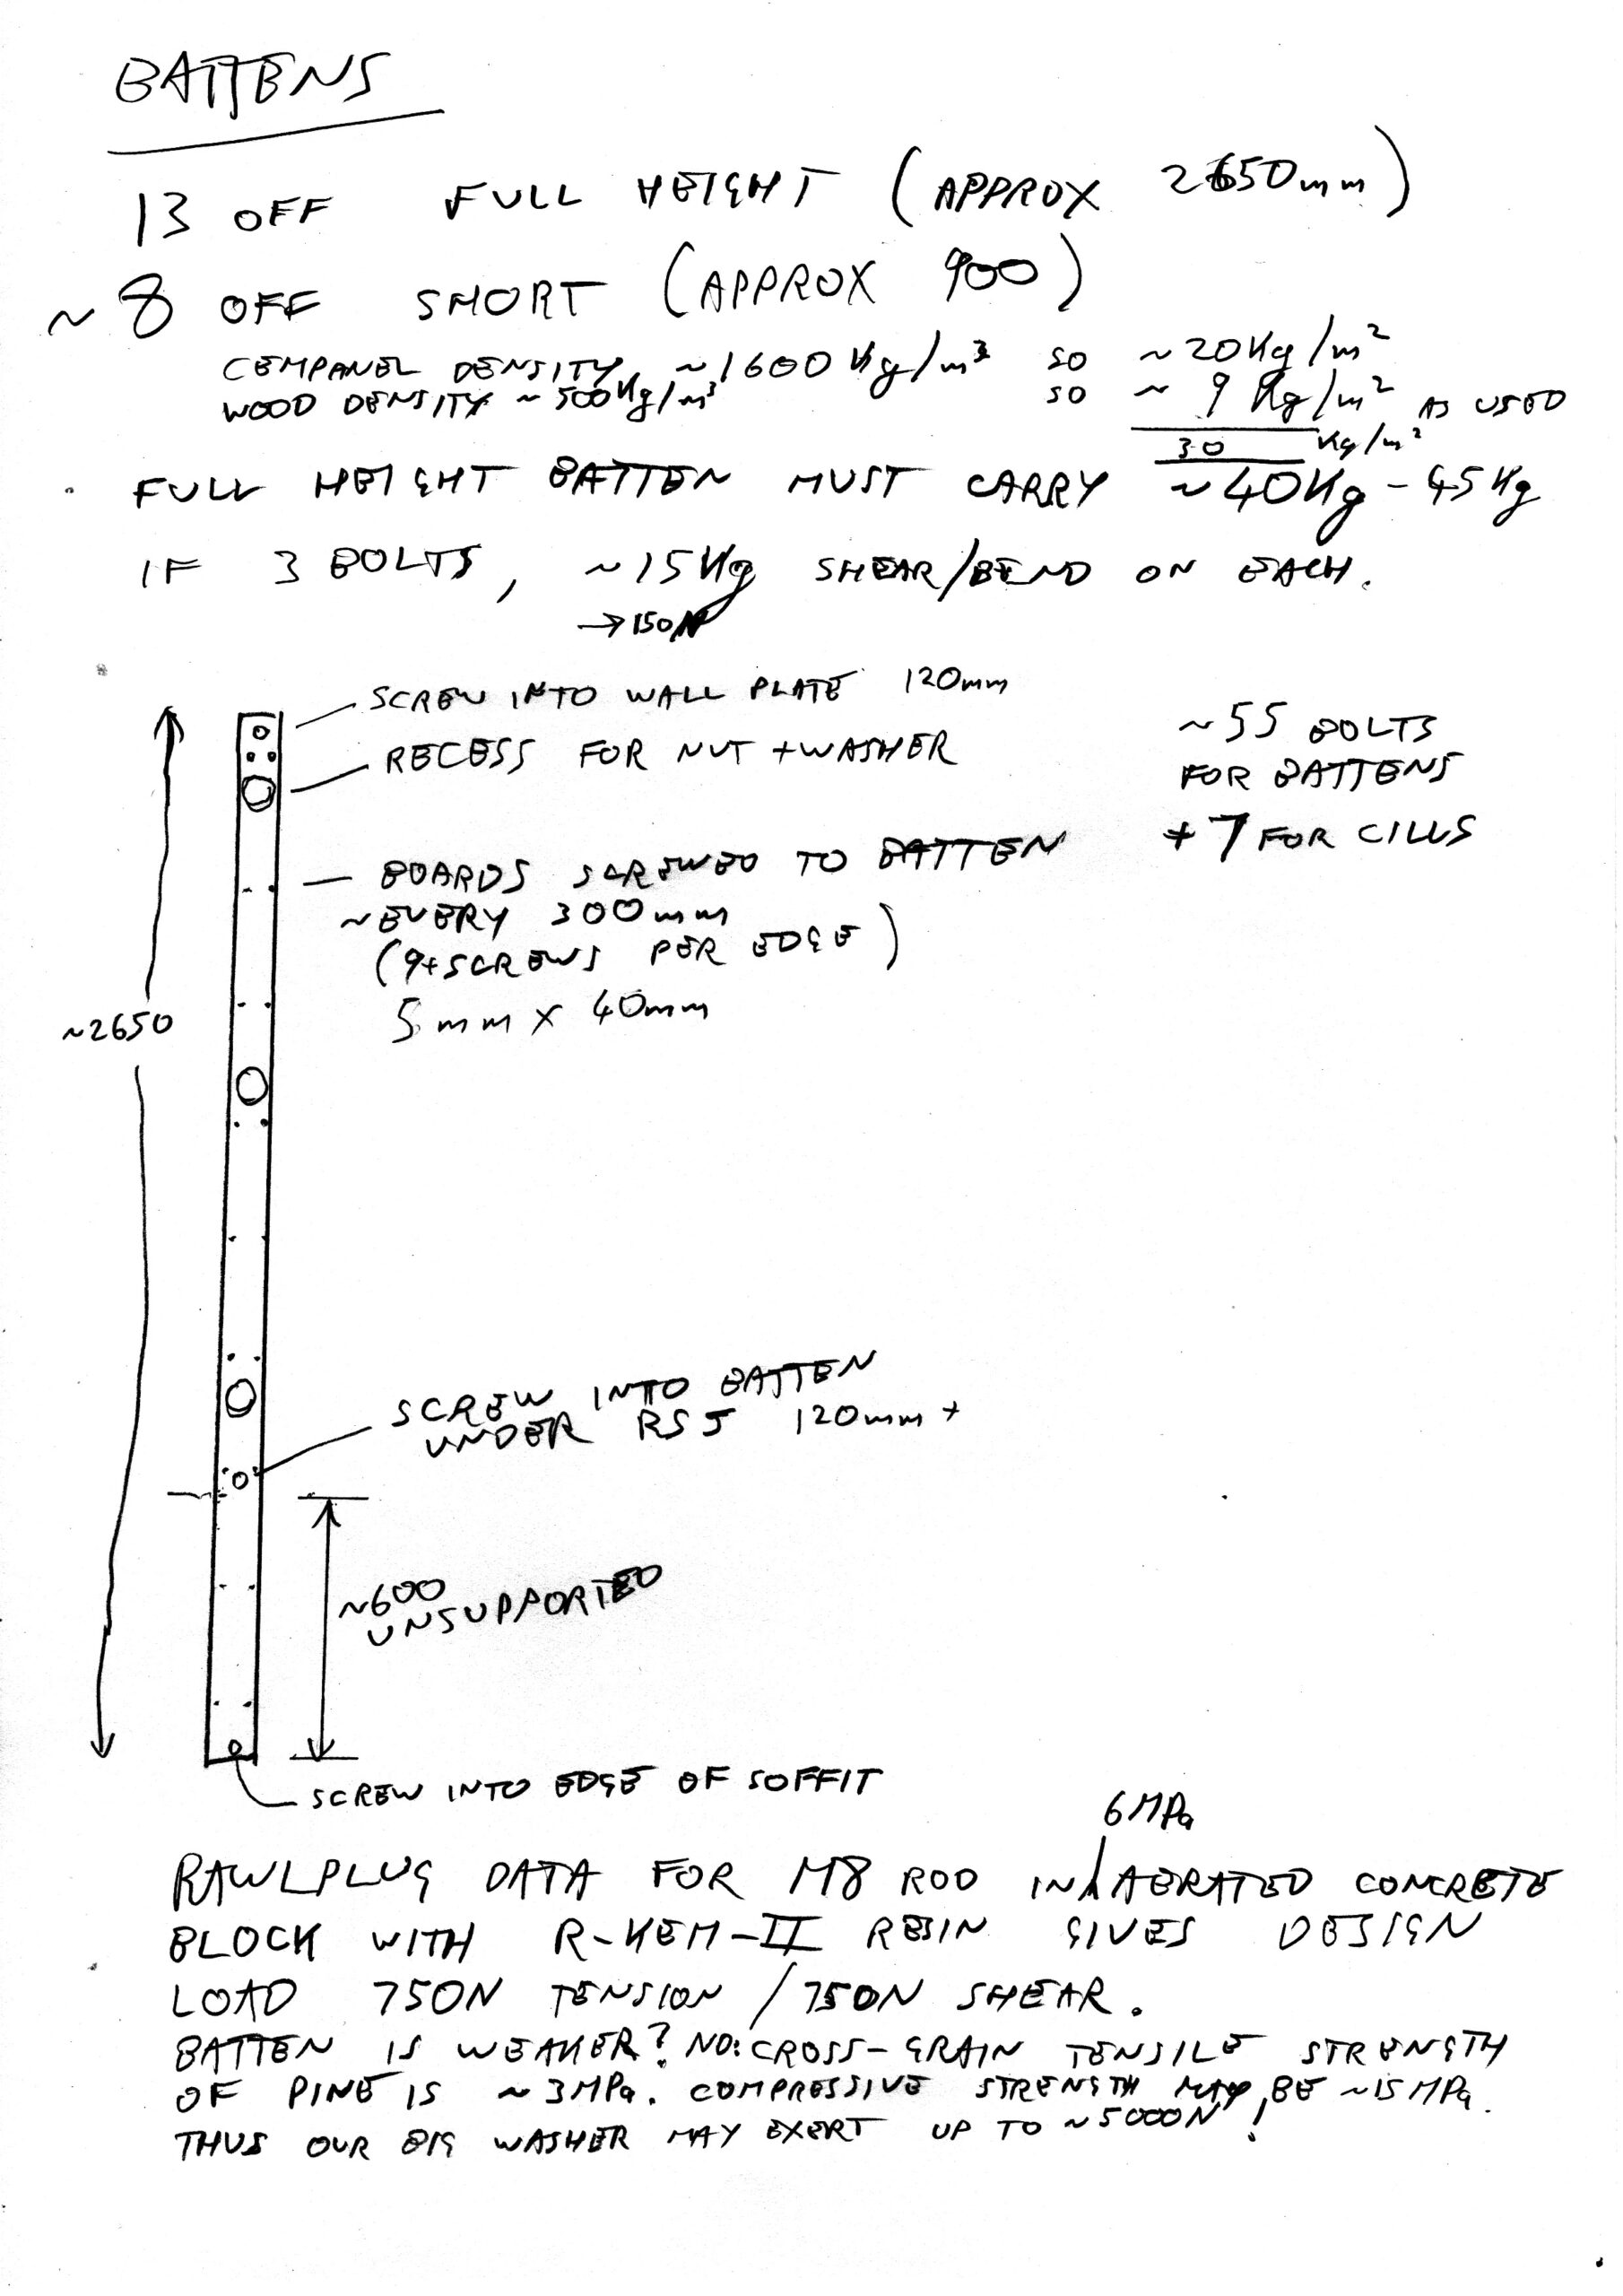 BATTENS
13 OFF FULL HEIGHT (APPROX 2650mm)
~8 OFF SHORT (APPROX 900)
CEMPANEL DENSITY ~1600Kg/m³ SO ~20Kg/m²
WOOD DENSITY ~500Kg/m³ SO ~9Kg/m² AS USED
30 Kg/m²
FULL HEIGHT BATTEN MUST CARRY ~40Kg-45Kg
IF 3 BOLTS, ~15Kg SHEAR/BEND ON EACH.
→150N
SCREW INTO WALL PLATE 120mm
RECESS FOR NUT +WASHER
~55 BOLTS
FOR BATTENS
+7 FOR CILLS
BOARDS SCREWED TO BATTEN
~EVERY 300mm
(9+SCREWS PER EDGE)
5mm x 40mm
~2650
SCREW INTO BATTEN
UNDER RSJ 120mm+
~600
UNSUPPORTED
SCREW INTO EDGE OF SOFFIT
6MPa
RAWLPLUG DATA FOR M8 ROD IN AERATED CONCRETE
BLOCK WITH R-KEM-II RESIN GIVES DESIGN
LOAD 750N TENSION/750N SHEAR.
BATTEN IS WEAKER? NO: CROSS-GRAIN TENSILE STRENGTH
OF PINE IS ~3MPa. COMPRESSIVE STRENGTH MAY BE ~15MPa.
THUS OUR BIG WASHER MAY EXERT UP TO ~5000N!